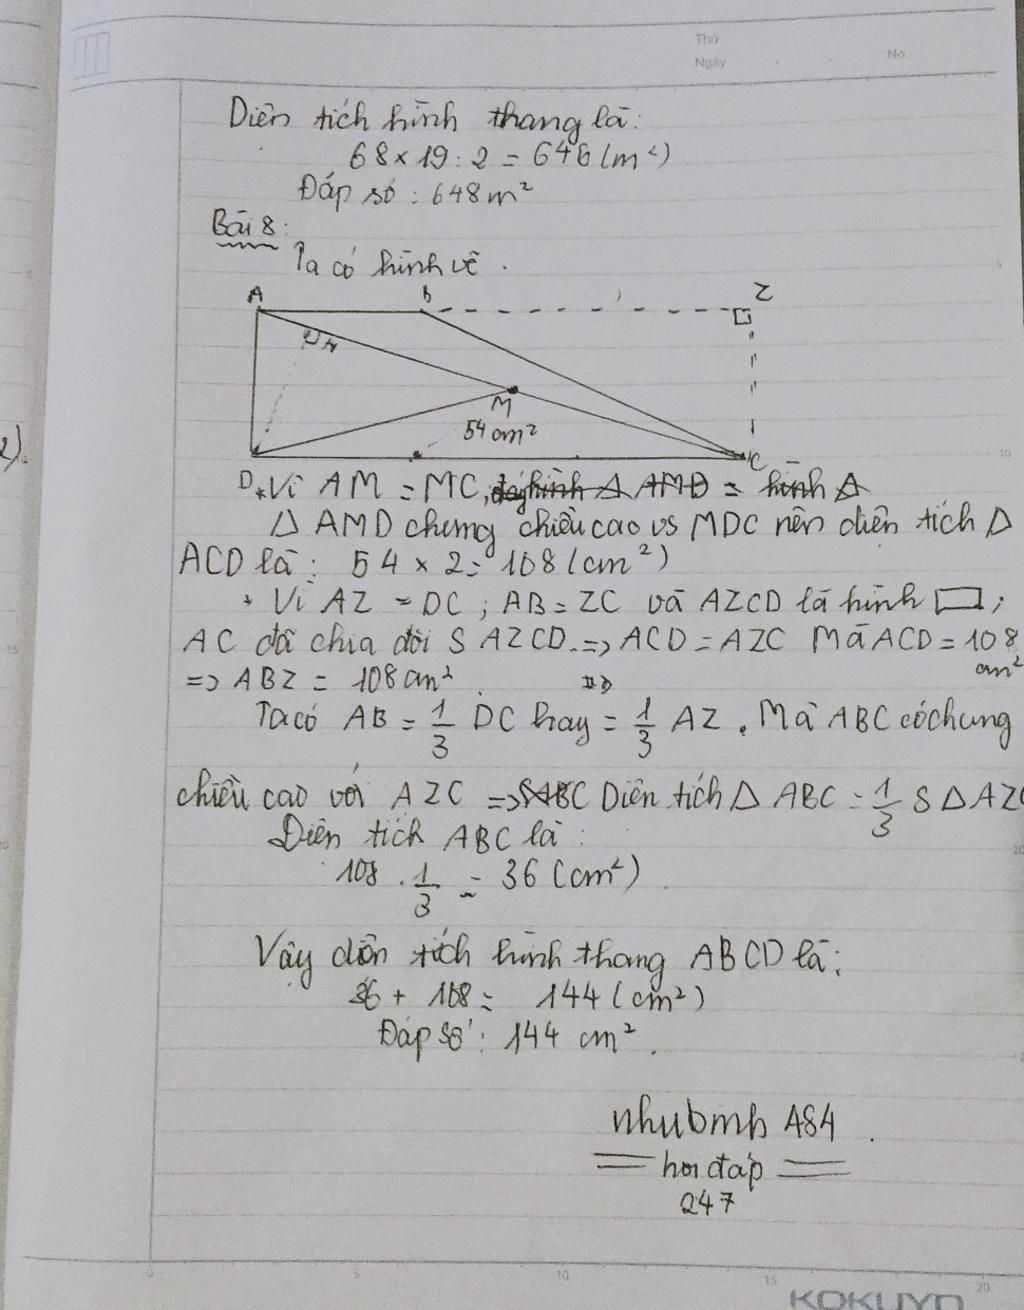 Thứ
Ngày
No.
Diện tích hình thang là:
68 × 19 : 2 = 646 (m²)
Đáp số : 648 m²
Bài 8:
Ta có hình vẽ.
A B Z
M
54 cm²
D C
* Vì AM = MC,
Δ AMD chung chiều cao vs MDC nên diện tích Δ
ACD là: 54 × 2 = 108 (cm²)
* Vì AZ = DC ; AB = ZC và AZCD là hình ▭;
AC đã chia đôi S AZCD. => ACD = AZC Mà ACD = 108
cm²
=> ABZ = 108 cm².
Ta có AB = 1/3 DC hay = 1/3 AZ. Mà ABC có chung
chiều cao với AZC => Diện tích Δ ABC = 1/3 S Δ AZC
Diện tích ABC là:
108 . 1/3 = 36 (cm²)
Vậy diện tích hình thang ABCD là:
36 + 108 = 144 (cm²)
Đáp số: 144 cm².
nhubinh A84
hoi đáp
247
2).
KOKUYO